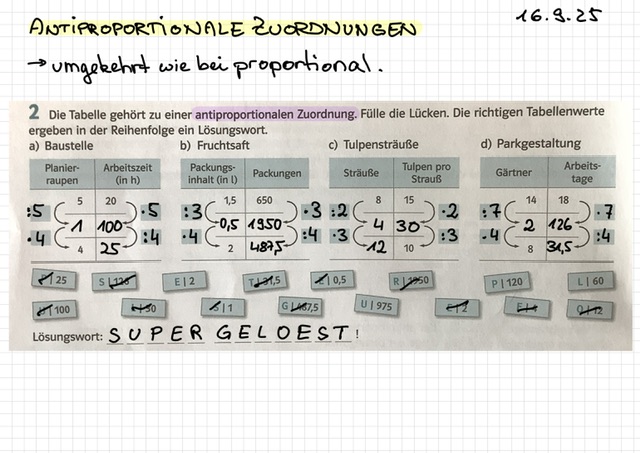 ANTIPROPORTIONALE ZUORDNUNGEN
16.9.25
→ umgekehrt wie bei proportional.
2 Die Tabelle gehört zu einer antiproportionalen Zuordnung. Fülle die Lücken. Die richtigen Tabellenwerte
ergeben in der Reihenfolge ein Lösungswort.
a) Baustelle b) Fruchtsaft c) Tulpensträuße d) Parkgestaltung
Planier-raupen Arbeitszeit (in h) Packungs-inhalt (in l) Packungen Sträuße Tulpen pro Strauß Gärtner Arbeits-tage
5 20 1,5 650 8 15 14 18
:5 ·5 :3 ·3 :2 ·2 :7 ·7
1 100 0,5 1950 4 30 2 126
·4 :4 ·4 :4 ·3 :3 ·4 :4
4 25 2 487,5 12 10 8 31,5
25 E | 2 T | 31,5 | 0,5 R | 1950 P | 120 L | 60
100 | 1 G | 487,5 U | 975
Lösungswort: SUPER GELOEST!